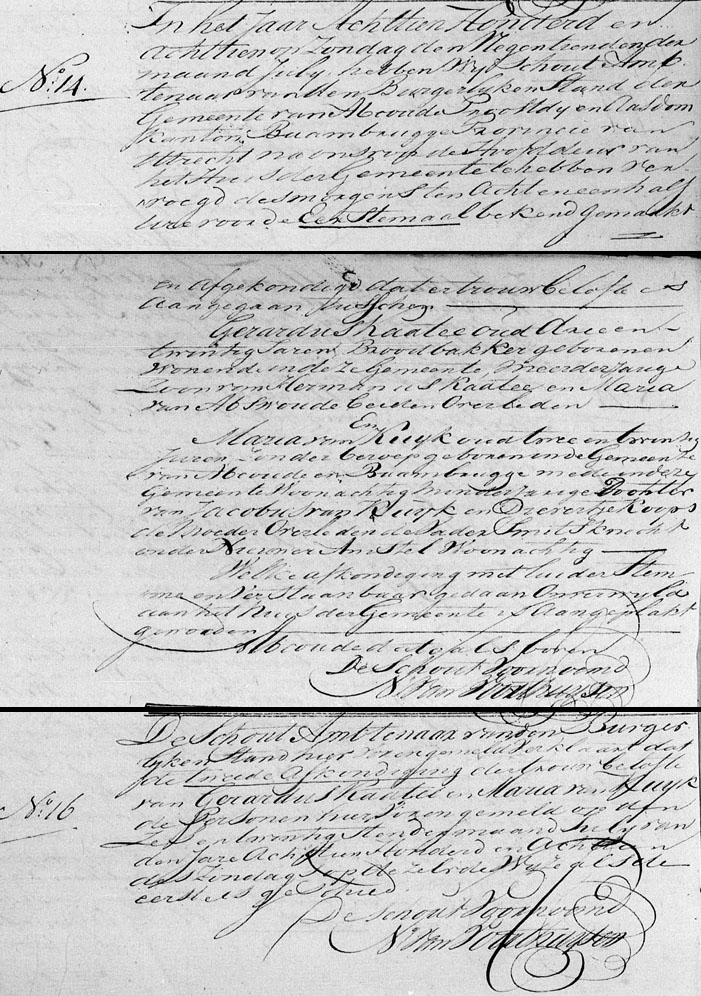 In het Jaar Achttien Honderd en
Achttien op Zondag den Negentienden der
maand July, hebben Wij Schout Amb-
No. 14.
tenaar van den Burgerlyken Stand der
Gemeente van Abcoude Proostdy en Aasdom
kanton Baambrugge Provincie van
Utrecht na ons op de Hoofddeur van
het Huis der Gemeente te hebben ver-
voegd des morgens ten Acht en een half
uure voor de Eerstemaal bekend gemaakt
en afgekondigd dat er trouwbelofte is
aangegaan tusschen
Gerardus Kaatee oud Drie en
twintig Jaren Broodbakker geboren en
Wonende in deze Gemeente Meerderjarige
Zoon van Hermanus Kaatee en Maria
van Abswoude beiden Overleden
En
Maria van Kuyk oud twee en twintig
Jaren Zonder beroep geboren in de Gemeente
van Abcoude en Baambrugge mede in deze
Gemeente Woonachtig Minderjarige Dochter
van Jacobus van Kuyk en Dievertje Koops
de Moeder Overleden de Vader Smitsknecht
onder Nieuwer Amstel Woonachtig
Welke afkondiging met luider Stem-
me en Verstaanbaar gedaan Onverwyld
aan het Huis der Gemeente is Aangeplakt
geworden
Abcoude dato als boven
De Schout Voornoemd
N. Van Voorthuysen
De Schout Ambtenaar van den Burger
lyken Stand hier voren gemeld verklaard dat
de tweede Afkondiging der trouwbelofte
van Gerardus Kaatee en Maria van Kuyk
No. 16
de Personen hier voren gemeld op den
Zes en twintigsten der maand July van
den Jare Achttien Honderd en Achttien
des Zondags op de zelve Wyze als de
eerste is geschied
De Schout Voornoemd
N. Van Voorthuysen